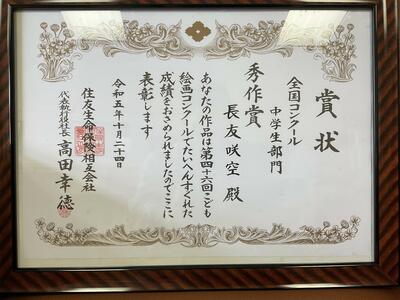 賞状
全国コンクール
中学生部門
秀作賞
長友咲空 殿
あなたの作品は第四十六回こども
絵画コンクールでたいへんすぐれた
成績をおさめられましたのでここに
表彰します
令和五年十月二十四日
住友生命保険相互会社
代表執行役社長 高田幸徳